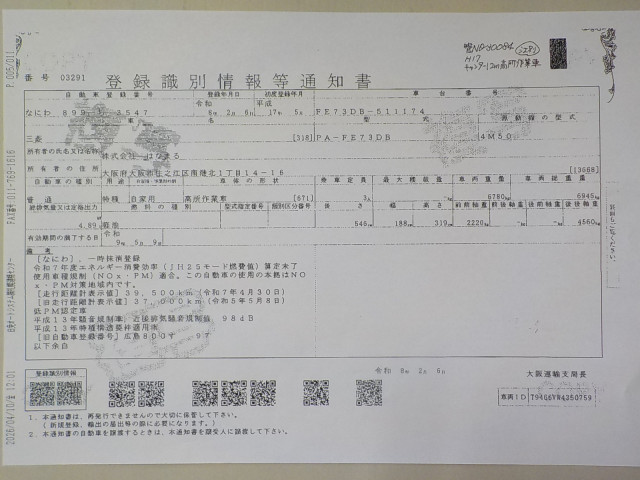 P. 005/011
FAX番号:011-769-1616
2026/04/10/金 12:01
H17
キャンター12m高所作業車
番号 03291
登録識別情報等通知書
自動車登録番号
登録年月日
初度登録年月
車台番号
令和
平成
なにわ
8年 2月 6日
17年 5月
FE73DB-511174
車名
型式
原動機の型式
三菱
[318]
PA-FE73DB
4M50
所有者の氏名又は名称
株式会社 はなまる
所有者の住所
大阪府大阪市住之江区南港北1丁目14-16
[13668]
自動車の種別
用途
自家用・事業用の別
車体の形状
乗車定員
最大積載量
車両重量
車両総重量
普通
特種
自家用
高所作業車
[671]
3人
6780kg
6945kg
総排気量又は定格出力
燃料の種類
型式指定番号
類別区分番号
長さ
幅
高さ
前前軸重
前後軸重
後前軸重
後後軸重
4.89
軽油
188cm
319cm
2220kg
4560kg
有効期間の満了する日
令和
9年 5月 9日
備考
[なにわ],一時抹消登録
令和7年度エネルギー消費効率(JH25モード燃費値)算定未了
使用車種規制(NOx・PM)適合。この自動車の使用の本拠はNO
x・PM対策地域内です。
[走行距離計表示値] 39,500km(令和7年4月30日)
[旧走行距離計表示値] 37,000km(令和5年5月8日)
低PM認定車
平成13年騒音規制車,近接排気騒音規制値 98dB
平成13年特種構造要件適用車
[旧自動車登録番号] 広島800す 97
以下余白
登録識別情報
令和 8年 2月 6日
大阪運輸支局長
車両ID
1.本通知書は、再発行できませんので大切に保管して下さい。
(新規登録、輸出の届出等の際に必要になります。)
2.本通知書の自動車を譲渡するときは、本通知書を譲受人に譲渡して下さい。